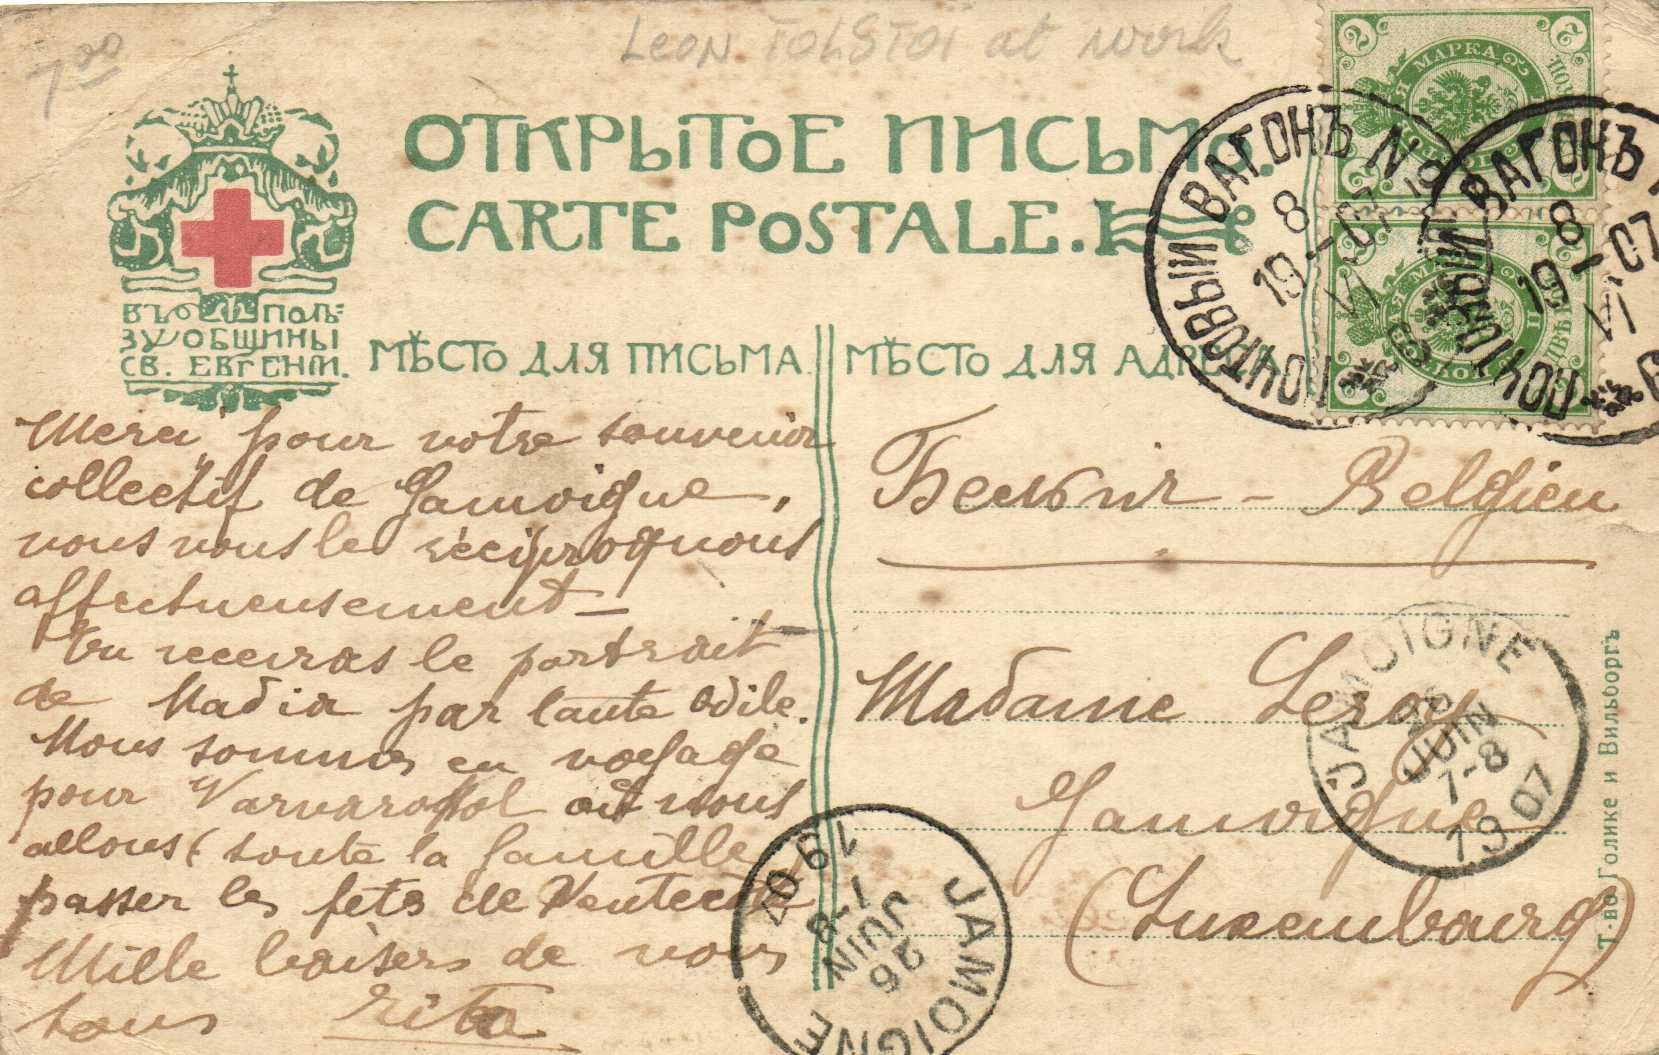 7 00
Leon TOLSTOÏ at work
ОТКРЫТОЕ ПИСЬМО.
CARTE POSTALE.
ВЪ ПОЛЬ-
ЗУ ОБЩИНЫ
СВ. ЕВГЕНІИ.
МѢСТО ДЛЯ ПИСЬМА
МѢСТО ДЛЯ АДРЕСА
2 МАРКА 2
ПОЧТОВЫЙ ВАГОНЪ №
8
19-07
VI
ПОЧТОВЫЙ ВАГОНЪ
8
19-07
VI
Merci pour votre souvenir
collectif de Jamoigne,
nous vous le réciproquons
affectueusement –
Tu recevras le portrait
de Nadia par tante Odile.
Nous sommes en voyage
pour où nous
allons (toute la famille
passer les fets de Pentecôte
Mille baisers de nous
tous Rita
Бельгія - Belgien
Madame Leroy
Jamoigne
(Luxembourg)
JAMOIGNE
26
JUIN
7-8
1907
JAMOIGNE
26
JUIN
7-8
1907
Т-во Голике и Вильборгъ